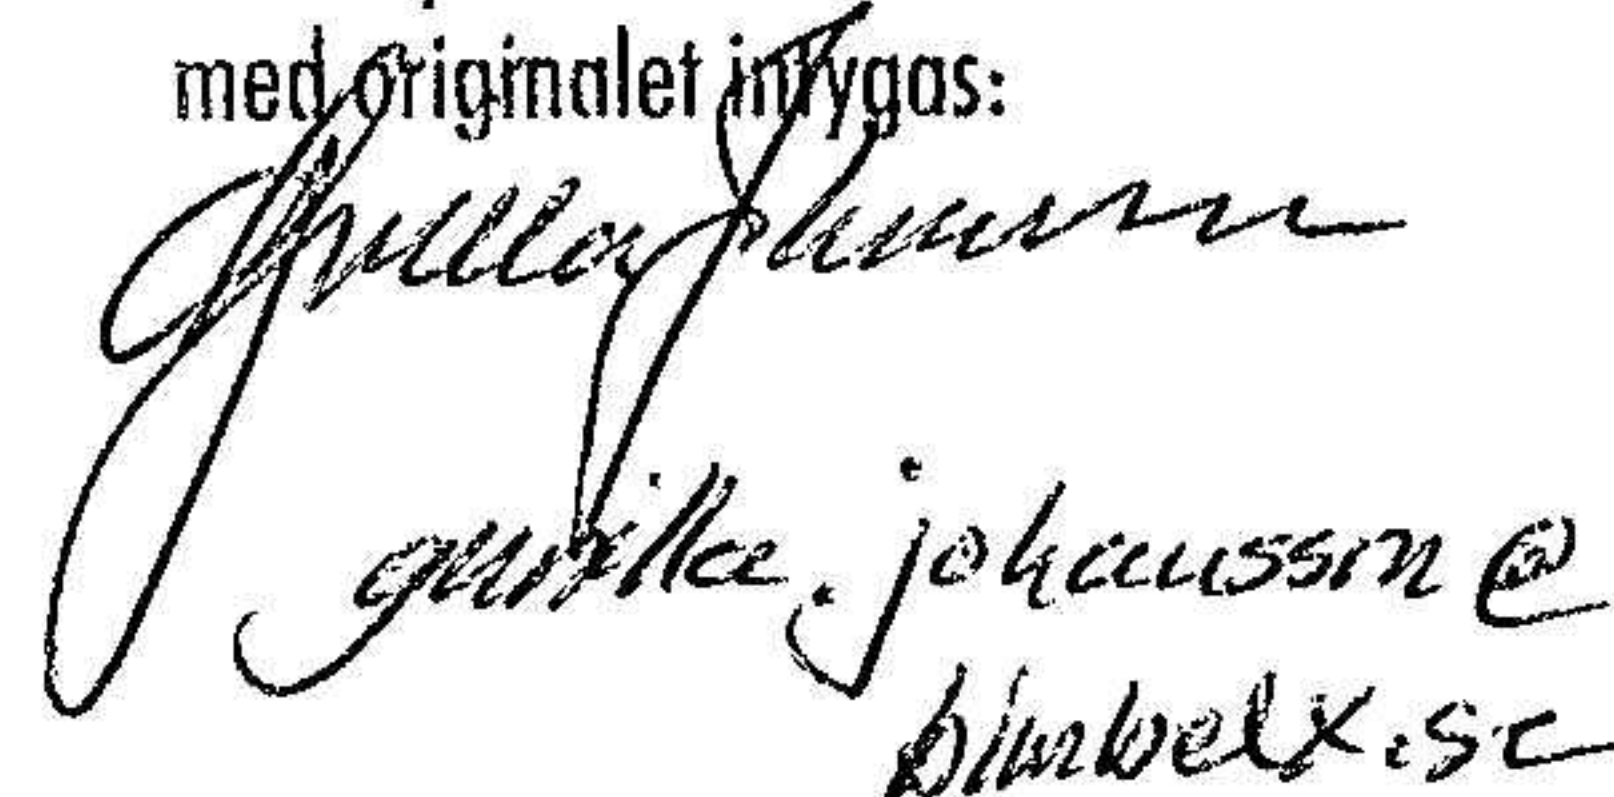 med originalet intygas:
Gunilla Johansson
gunilla.johansson@
bimbelx.se